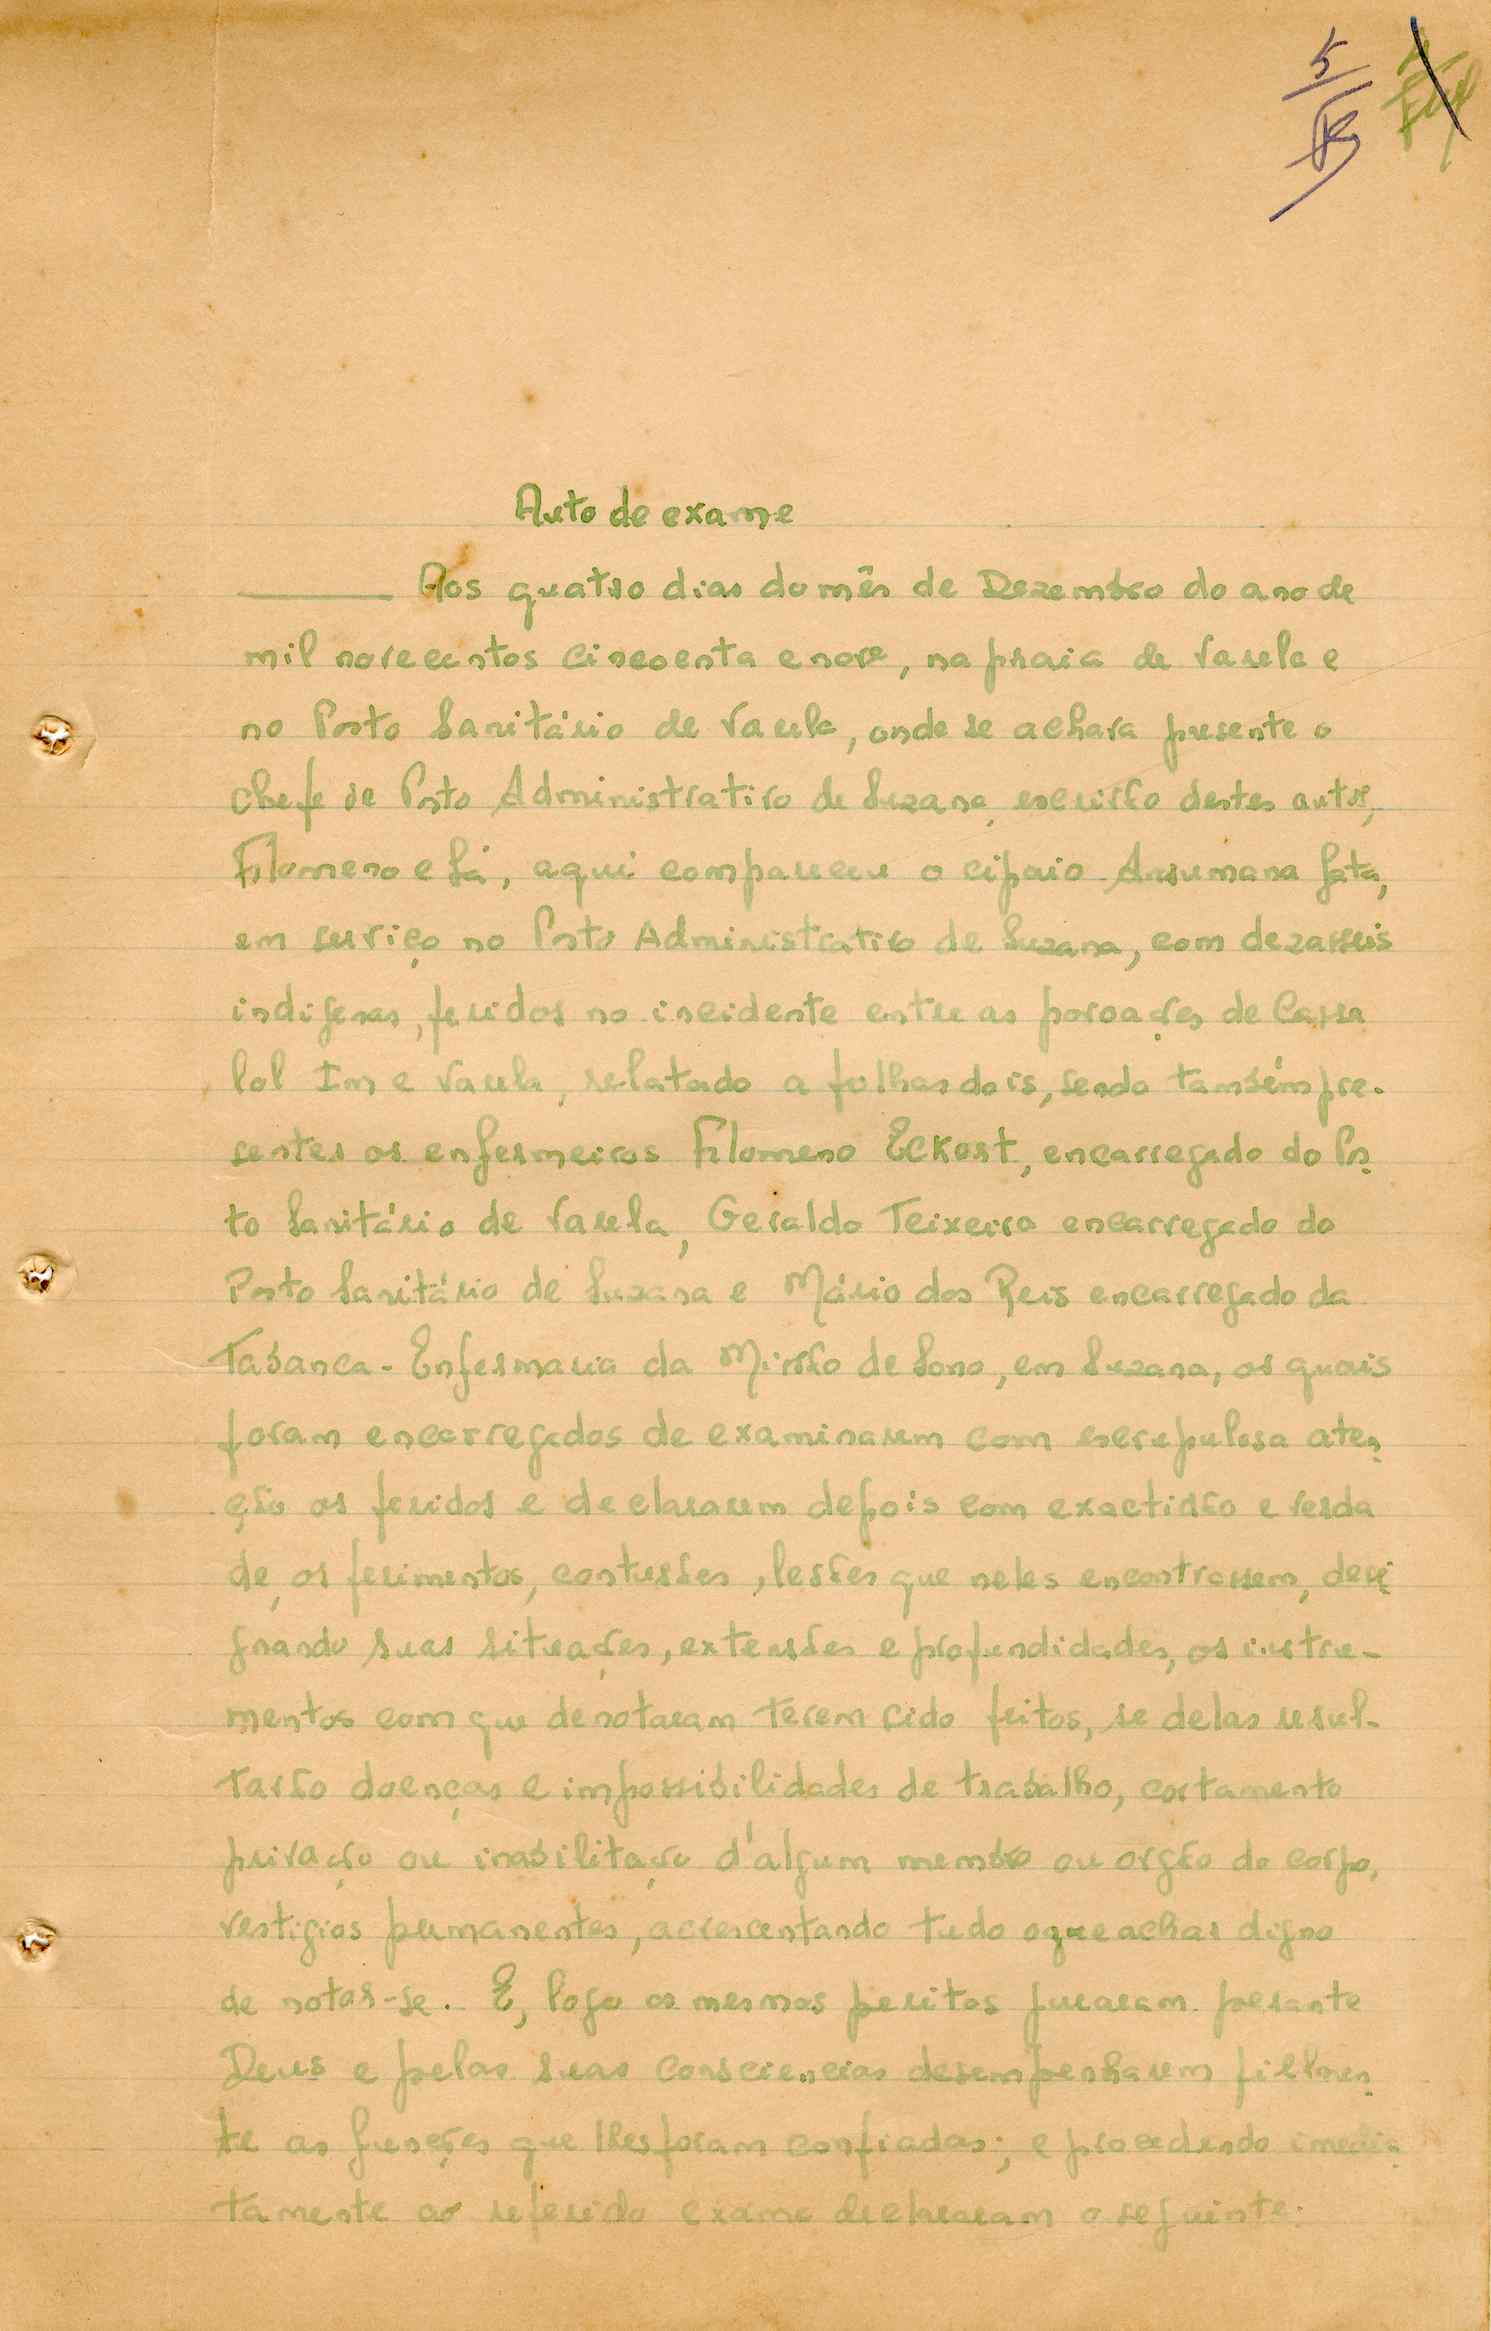 5
Auto de exame
Aos quatro dias do mês de Dezembro do ano de
mil novecentos cincoenta e nove, na praia de Varela e
no Posto Sanitário de Varela, onde se achava presente o
Chefe de Posto Administrativo de Suzana, escrivão destes autos,
Filomeno e Sá, aqui compareceu o cipaio Ansumana Sata,
em serviço no Posto Administrativo de Suzana, com dezasseis
indigenas, feridos no incidente entre as povoações de Cassa
lol Im e Varela, relatado a folhas dois, sendo também pre-
sentes os enfermeiros Filomeno Eckost, encarregado do Pos
to Sanitário de Varela, Geraldo Teixeira encarregado do
Posto Sanitário de Suzana e Mário dos Reis encarregado da
Tabanca-Enfermaria da Missão de Sono, em Suzana, os quais
foram encarregados de examinarem com escrupulosa aten
ção os feridos e declararem depois com exactidão e verda
de, os ferimentos, contusões, lesões que neles encontrassem, desi
gnando suas situações, extensões e profundidades, os instru-
mentos com que denotaram terem cido feitos, se delas resul-
tarão doenças e impossibilidades de trabalho, cortamento
privação ou inabilitação d'algum membro ou orgão do corpo,
vestigios permanentes, acrescentando tudo o que achar digno
de notar-se. E, logo os mesmos peritos juraram perante
Deus e pelas suas consciencias desempenharem fielmen
te as funções que lhes foram confiadas; e procedendo imedia
tamente ao referido exame declararam o seguinte: